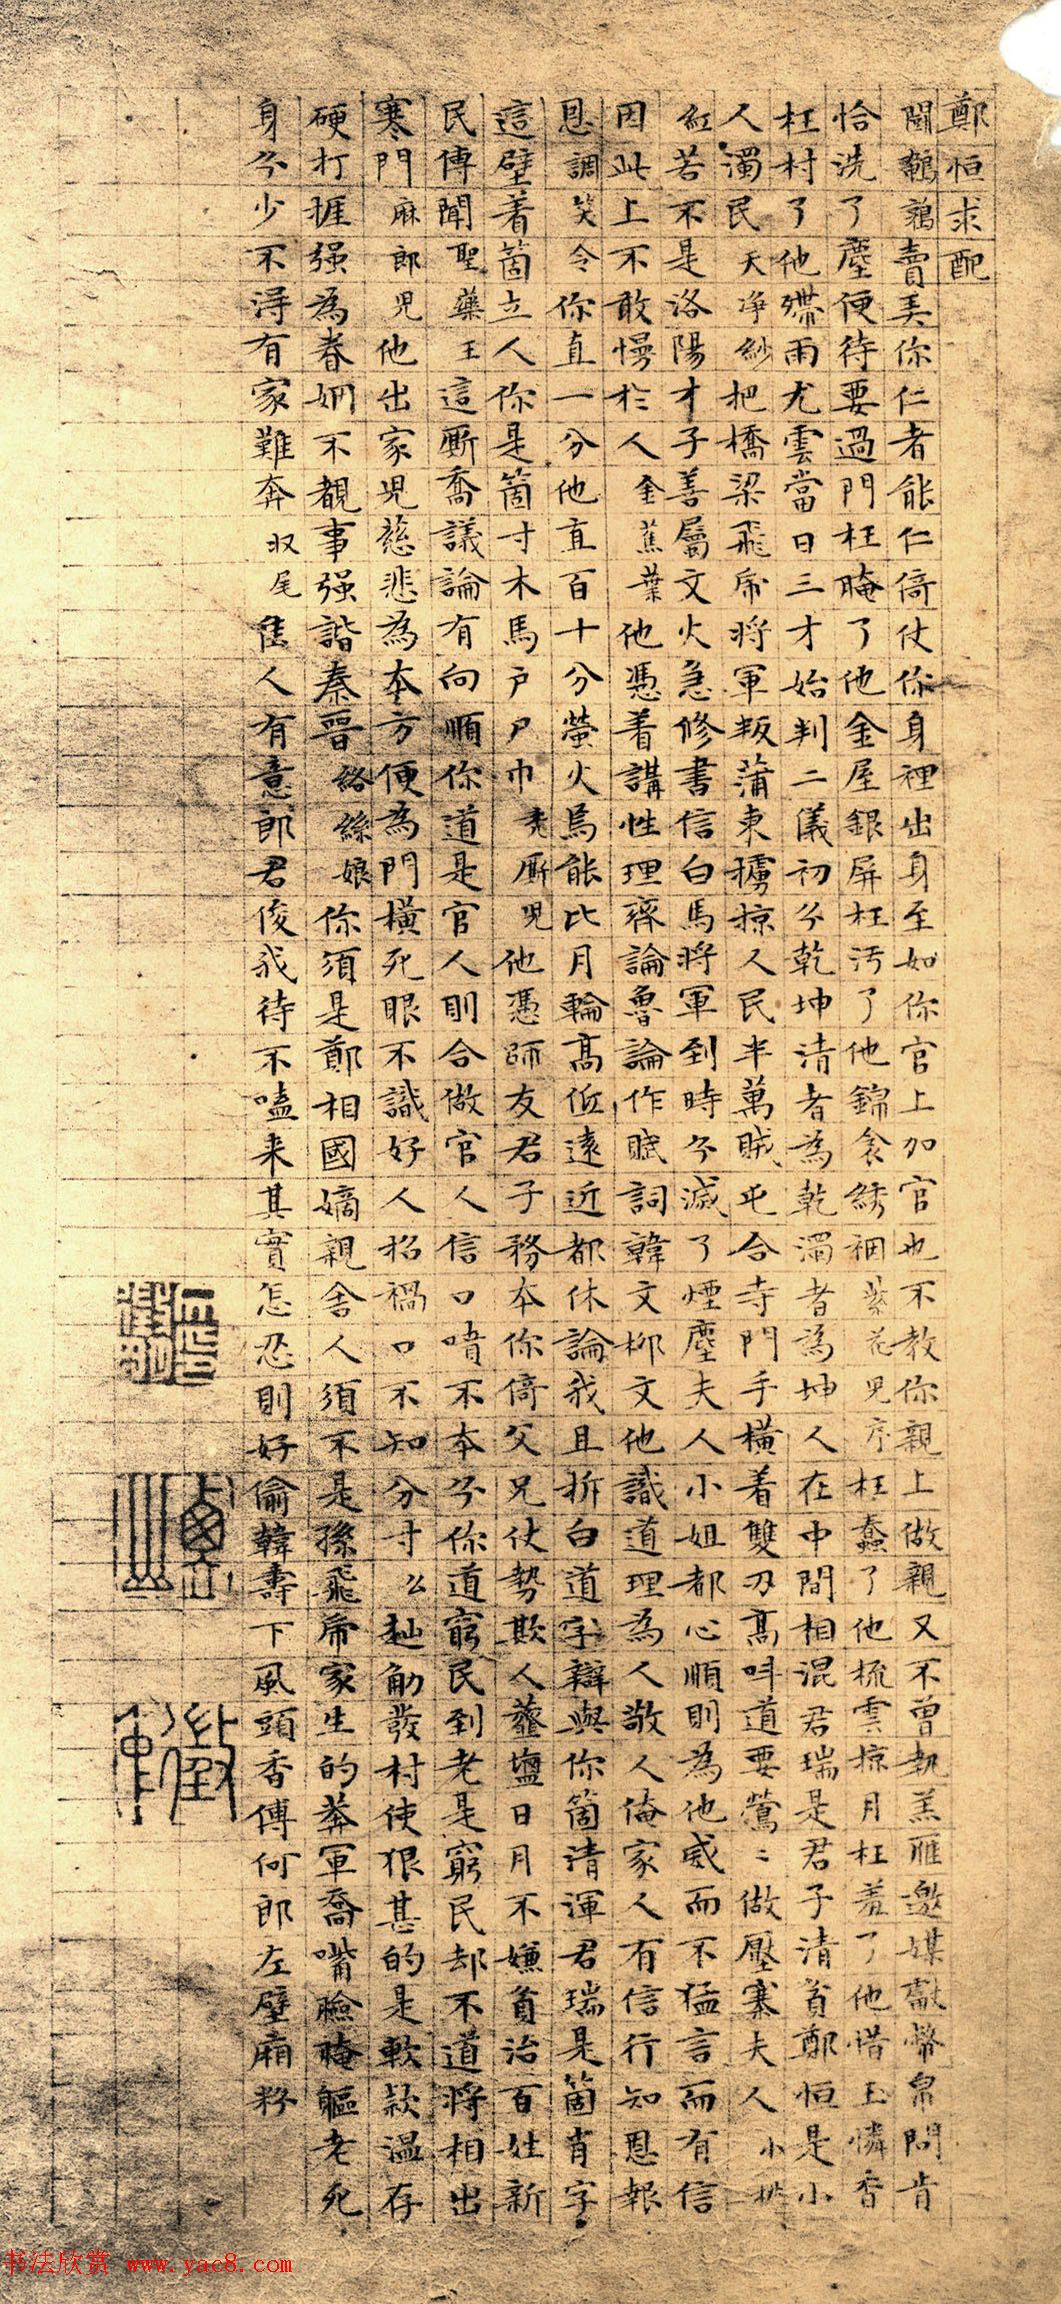 鄭恒求配
鬪鵪鶉賣弄你仁者能仁倚仗你身裡出身至如你官上加官也不教你親上做親又不曾執羔雁邀媒獻幣帛問肯
恰洗了塵便待要過門枉腌了他金屋銀屏枉污了他錦衾綉裀紫花兒序枉蠢了他梳雲掠月枉羞了他惜玉憐香
枉村了他殢雨尤雲當日三才始判二儀初分乾坤清者為乾濁者為坤人在中間相混君瑞是君子清貧鄭恒是小
人濁民天净紗把橋梁飛虎將軍叛蒲東擄掠人民半萬賊屯合寺門手橫着雙刃高叫道要鶯〻做壓寨夫人小桃
紅若不是洛陽才子善屬文火急修書信白馬將軍到時分滅了煙塵夫人小姐都心順則為他威而不猛言而有信
因此上不敢慢於人金蕉葉他憑着講性理齊論魯論作賦詞韓文柳文他識道理為人敬人俺家人有信行知恩報
恩調笑令你直一分他直百十分螢火焉能比月輪高低遠近都休論我且拆白道字辯與你箇清渾君瑞是箇肖字
這壁着箇立人你是箇寸木馬户尸巾禿厮兒他憑師友君子務本你倚父兄仗勢欺人虀鹽日月不嫌貧治百姓新
民傳聞聖藥王這厮喬議論有向順你道是官人則合做官人信口噴不本分你道窮民到老是窮民却不道將相出
寒門麻郎兒他出家兒慈悲為本方便為門橫死眼不識好人招禍口不知分寸么赸觔發村使狠甚的是軟款溫存
硬打捱强為眷姻不覩事强諧秦晉絡絲娘你須是鄭相國嫡親舍人須不是孫飛虎家生的莽軍喬嘴臉腌軀老死
身分少不得有家難奔収尾隹人有意郎君俊我待不嗑来其實怎忍則好偷韓壽下風頭香傅何郎左壁廂粉
书法欣赏 www.yac8.com